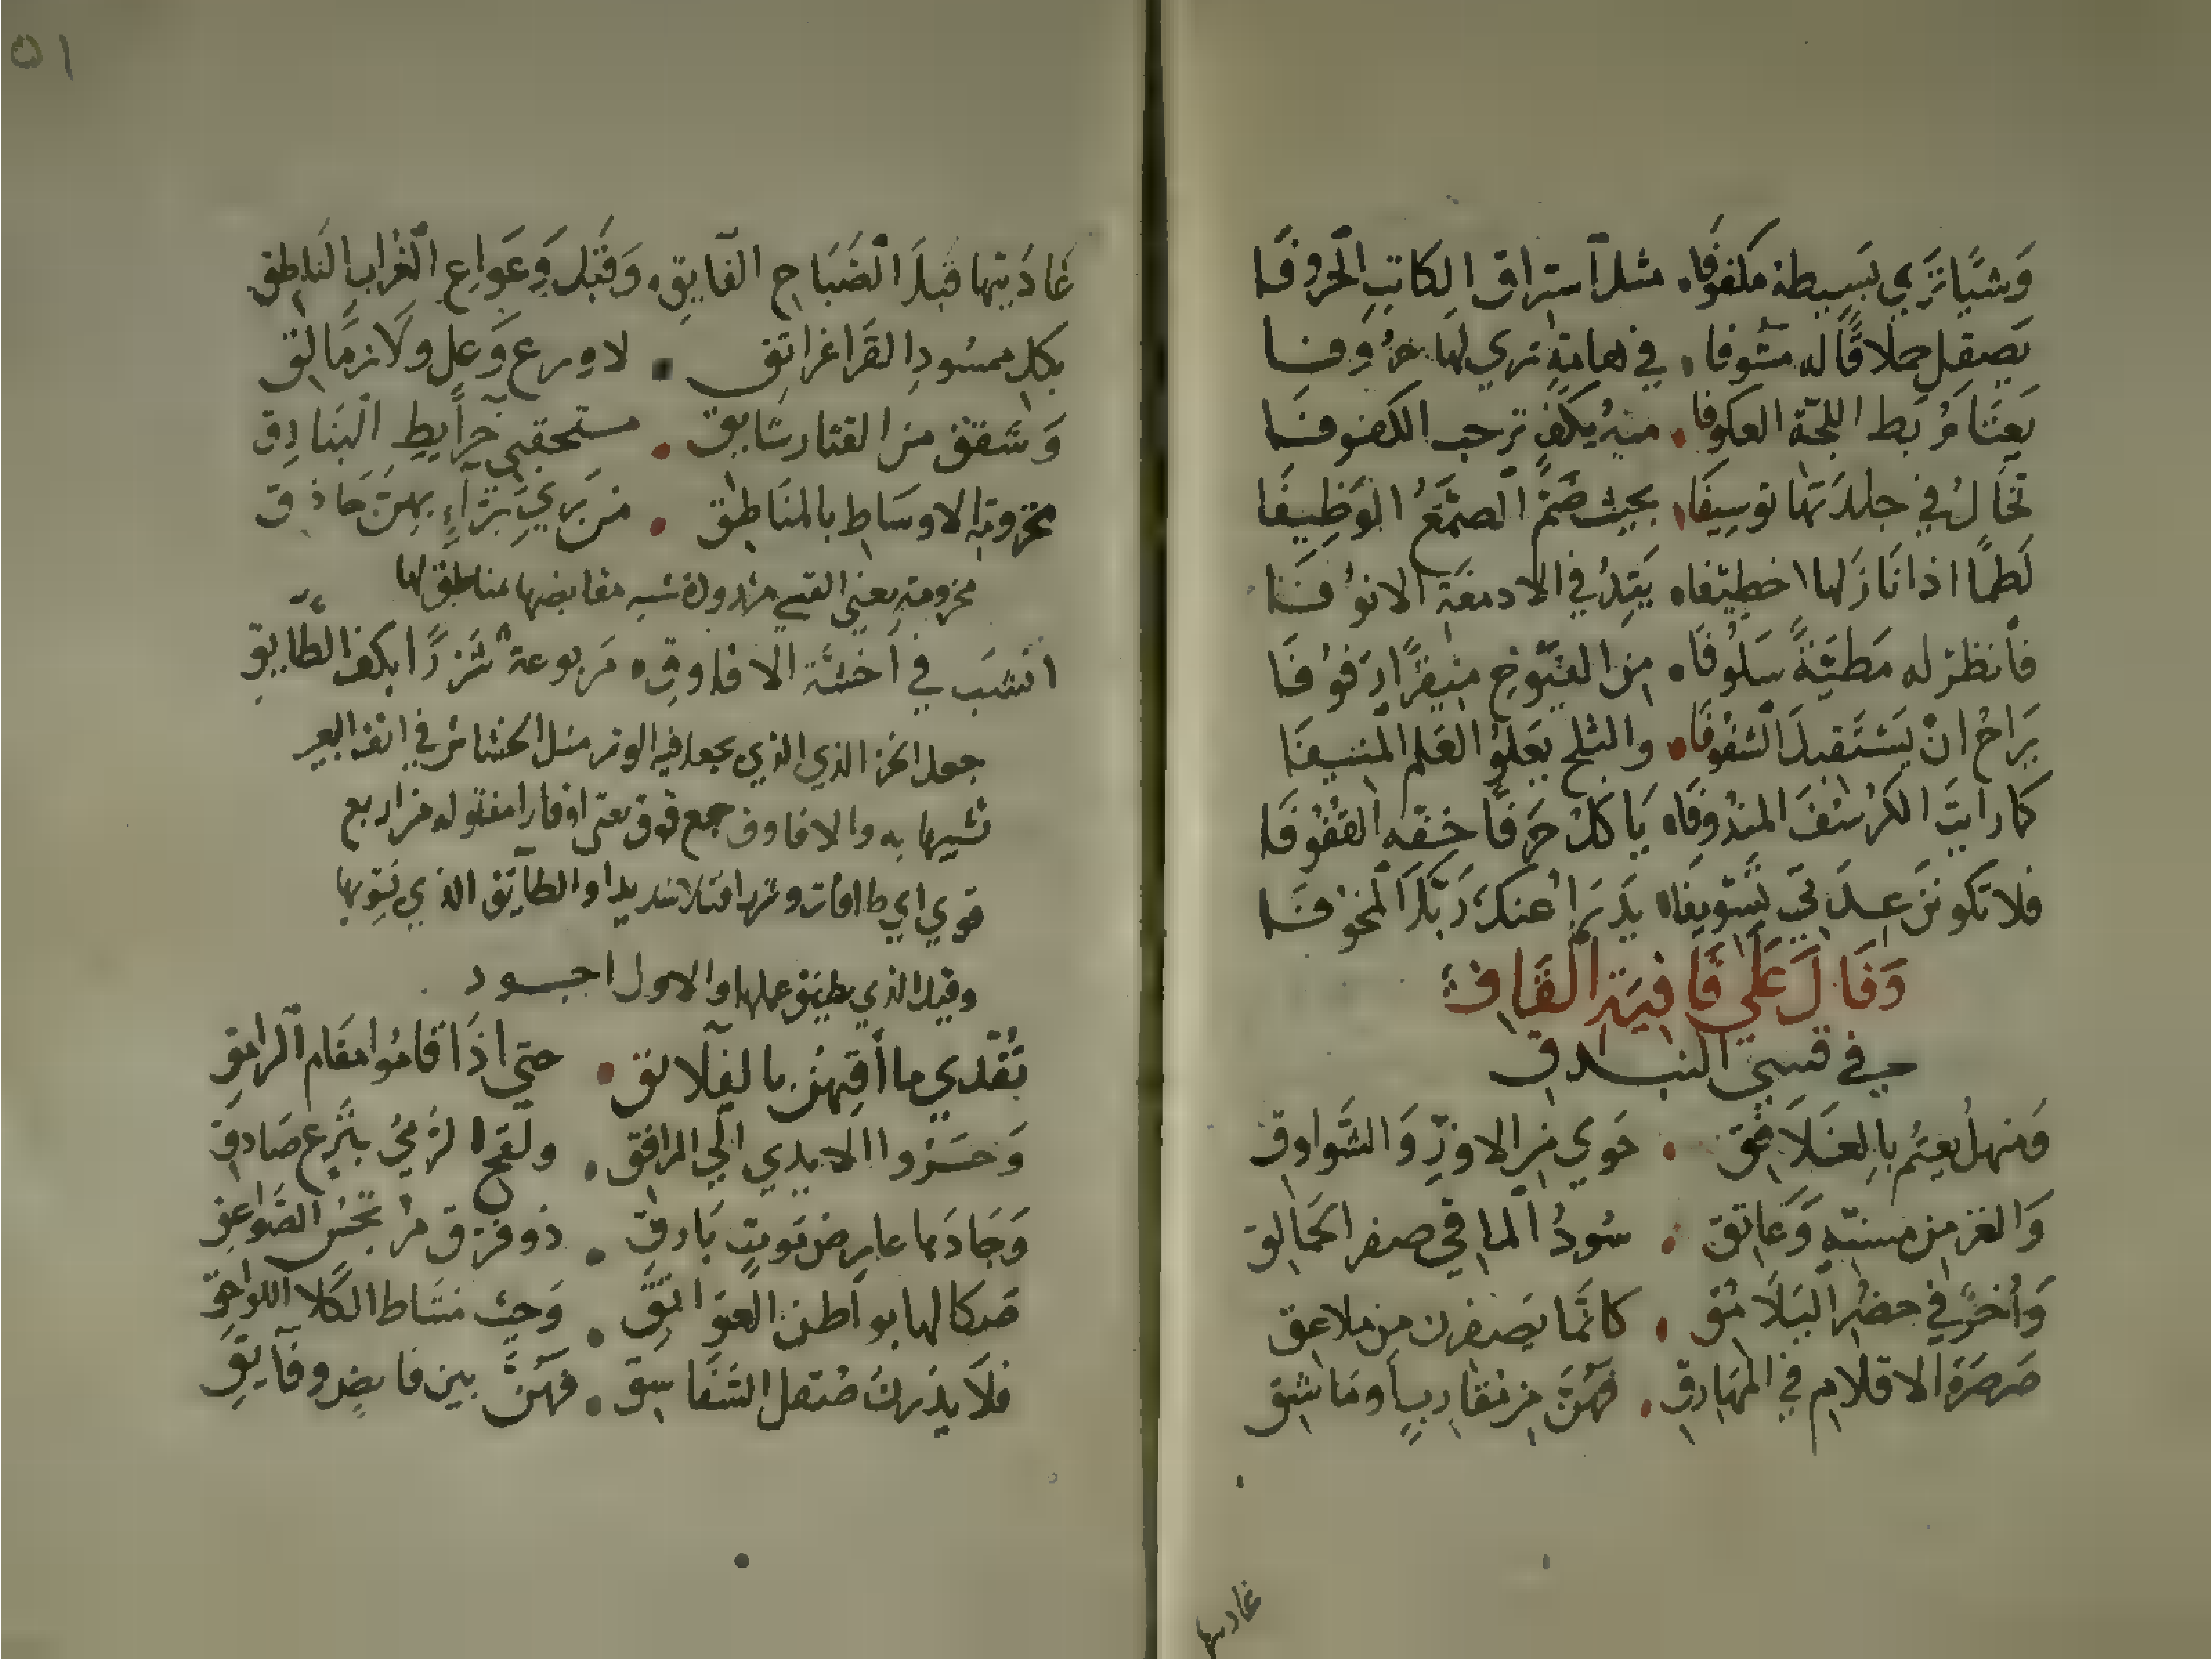 وَشيًا تَري بَسِيطهُ مكفوفَا مثل آستراق الكاتب الحروفَا
يَصقل حملاقًا له مشوفا في هامة تري لها حروفا
يَعتَامُ بَط اللجّة العكوفا منه بكفٍ ترحب الكفوفا
تخَالُ في جلدتها توسيفَا بحيث ضَمَّ الصمّعُ الوَظيفَا
لَطمًا اذا نَازلها خطيّفا يَبتدُ في الادمغَة الانوُفَا
فأنظرْ له مَطيّةً سَلوُفَا من الفيّوخ
يَراحُ انْ يَستَقبلَ الشفوُفَا والثلج يَعلوُ العَلم المنيفَا
كما رايتَ الكرُسُفَ المندُوفَا يَاكلُ حَرفًا خفّه القفوُفَا
فلا تكونَنَ عدَاتي تَسْويفَا عنكَ رَبّكَ المخوُفَا
وَقَالَ عَلَي قَافيَة القَاف
في قسيّ البندق
وَمنهل يعتم بالغلافق حَوي من الاوزّ وَالشّواوق
وَالغر من مسنّه وَعَاتق سُودُ المآقي صفر الحَمالق
وَأخرٍ في حضُر اليَلامق كانّما يَصفرن من ملاعق
صَرصَرةَ الاقلام في المهَارق فهُنّ من مقارب وَماشق
غاديتها
٥١
غَادَيتها قبلَ الصَّبَاح الفايق وَقبَل وَعوَاع الغراب النَاطق
بكل ممسُود القَرا غرانق لا ورع وَعل ولا زمّالق
وَشفقٍ من القتار شابق مستحقبي خرايط البنَادق
مخزومة الاوسَاط بالمنَاطق من بَري بَرّآءٍ بهنّ حَاذق
مخزومة يعني القسي مشدودة شبه مقابضها مناطق لها
انشبَ في اخشّة الافاوق مَربوعة شَزرًا بكف الطّايق
جعل الحز الذي الذي يجعل فيه الوتر مثل الخشاش في انف البعير
تشبيها به والافاوق جمع فوق يعني اوتارا مفتولة من اربع
قوي اي طاقات وشزرا فتلا شديدا والطآئق الذي
وقيل الذي يطيق عملها والاول اجود
تُفدّي ما أقهنّ بالفلائق حتي اذَا قامُوا مقَام الرامق
وَحسَروا الايدي الي المرافق ولَقح الرّميُ بنَزع صَادق
وَجَادَها عارض مَوتٍ بَارق ذو فرَق من تحتن الصّواعق
صَكا لها بواطن العَواتق وَحثّ منشاط الكُلا اللواحق
فلاَ يذرنَ صُنتعل الشقاشق فهنّ بين فايضٍ وفآيق